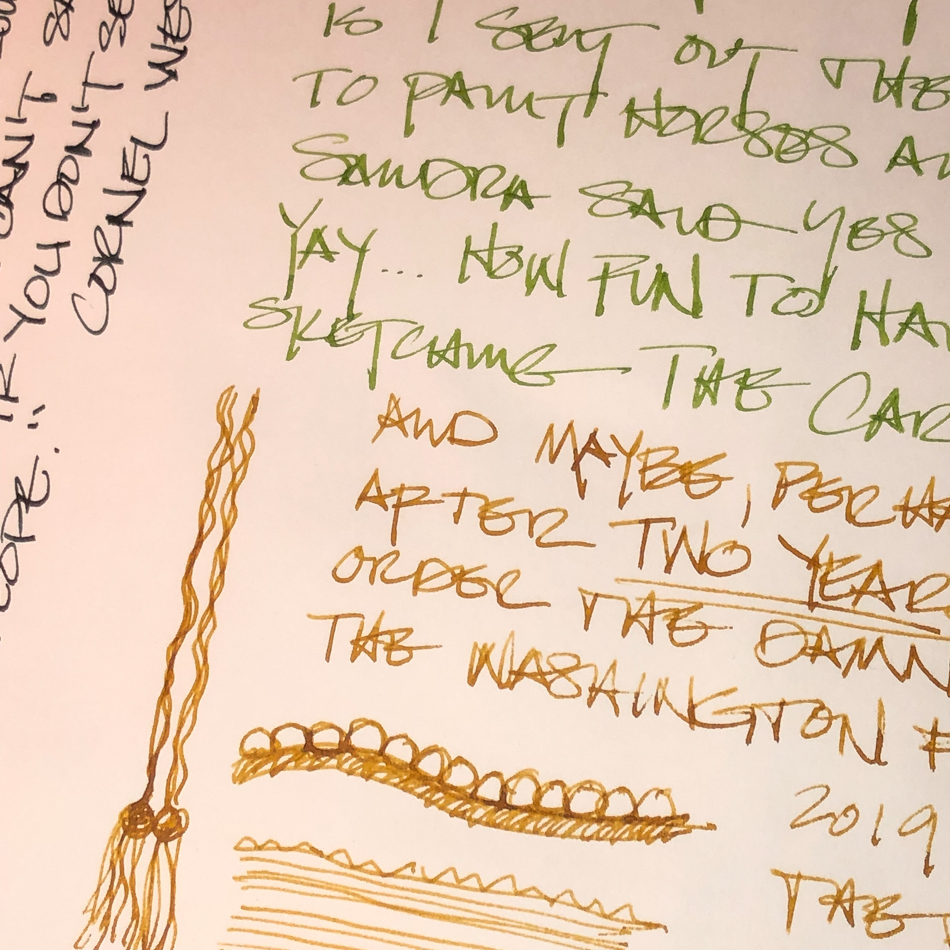 IS I SENT OUT THE
TO PAINT HORSES A
SANDRA SAID YES
YAY... HOW FUN TO HA
SKETCHING THE CAR
AND MAYBE, PERHA
AFTER TWO YEAR
ORDER THE DAMN
THE WASHINGTON #
2019
THE
CAN'T
IF YOU DON'T SE
CORNEL WES